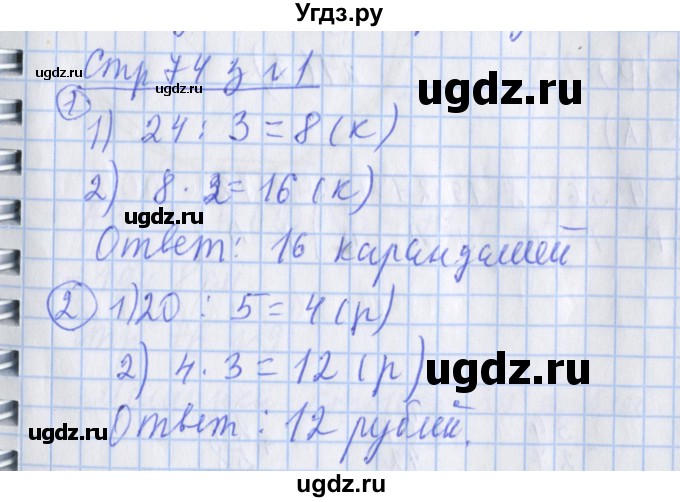 Угдз.ру
Стр 74 з №1
ugdz.ru
ugdz.ru
① 1) 24 : 3 = 8 (к)
2) 8 · 2 = 16 (к)
ugdz.ru
ugdz.ru
Ответ: 16 карандашей
② 1) 20 : 5 = 4 (р)
2) 4 · 3 = 12 (р)
ugdz.ru
ugdz.ru
Ответ: 12 рублей.
ugdz.ru